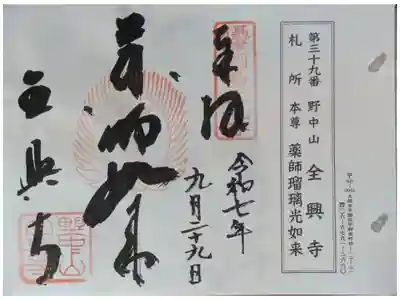 第三十九番 野中山 全興寺
札所 本尊 薬師瑠璃光如来
奉拝
令和七年
九月二十九日
薬師如来
全興寺
野中山